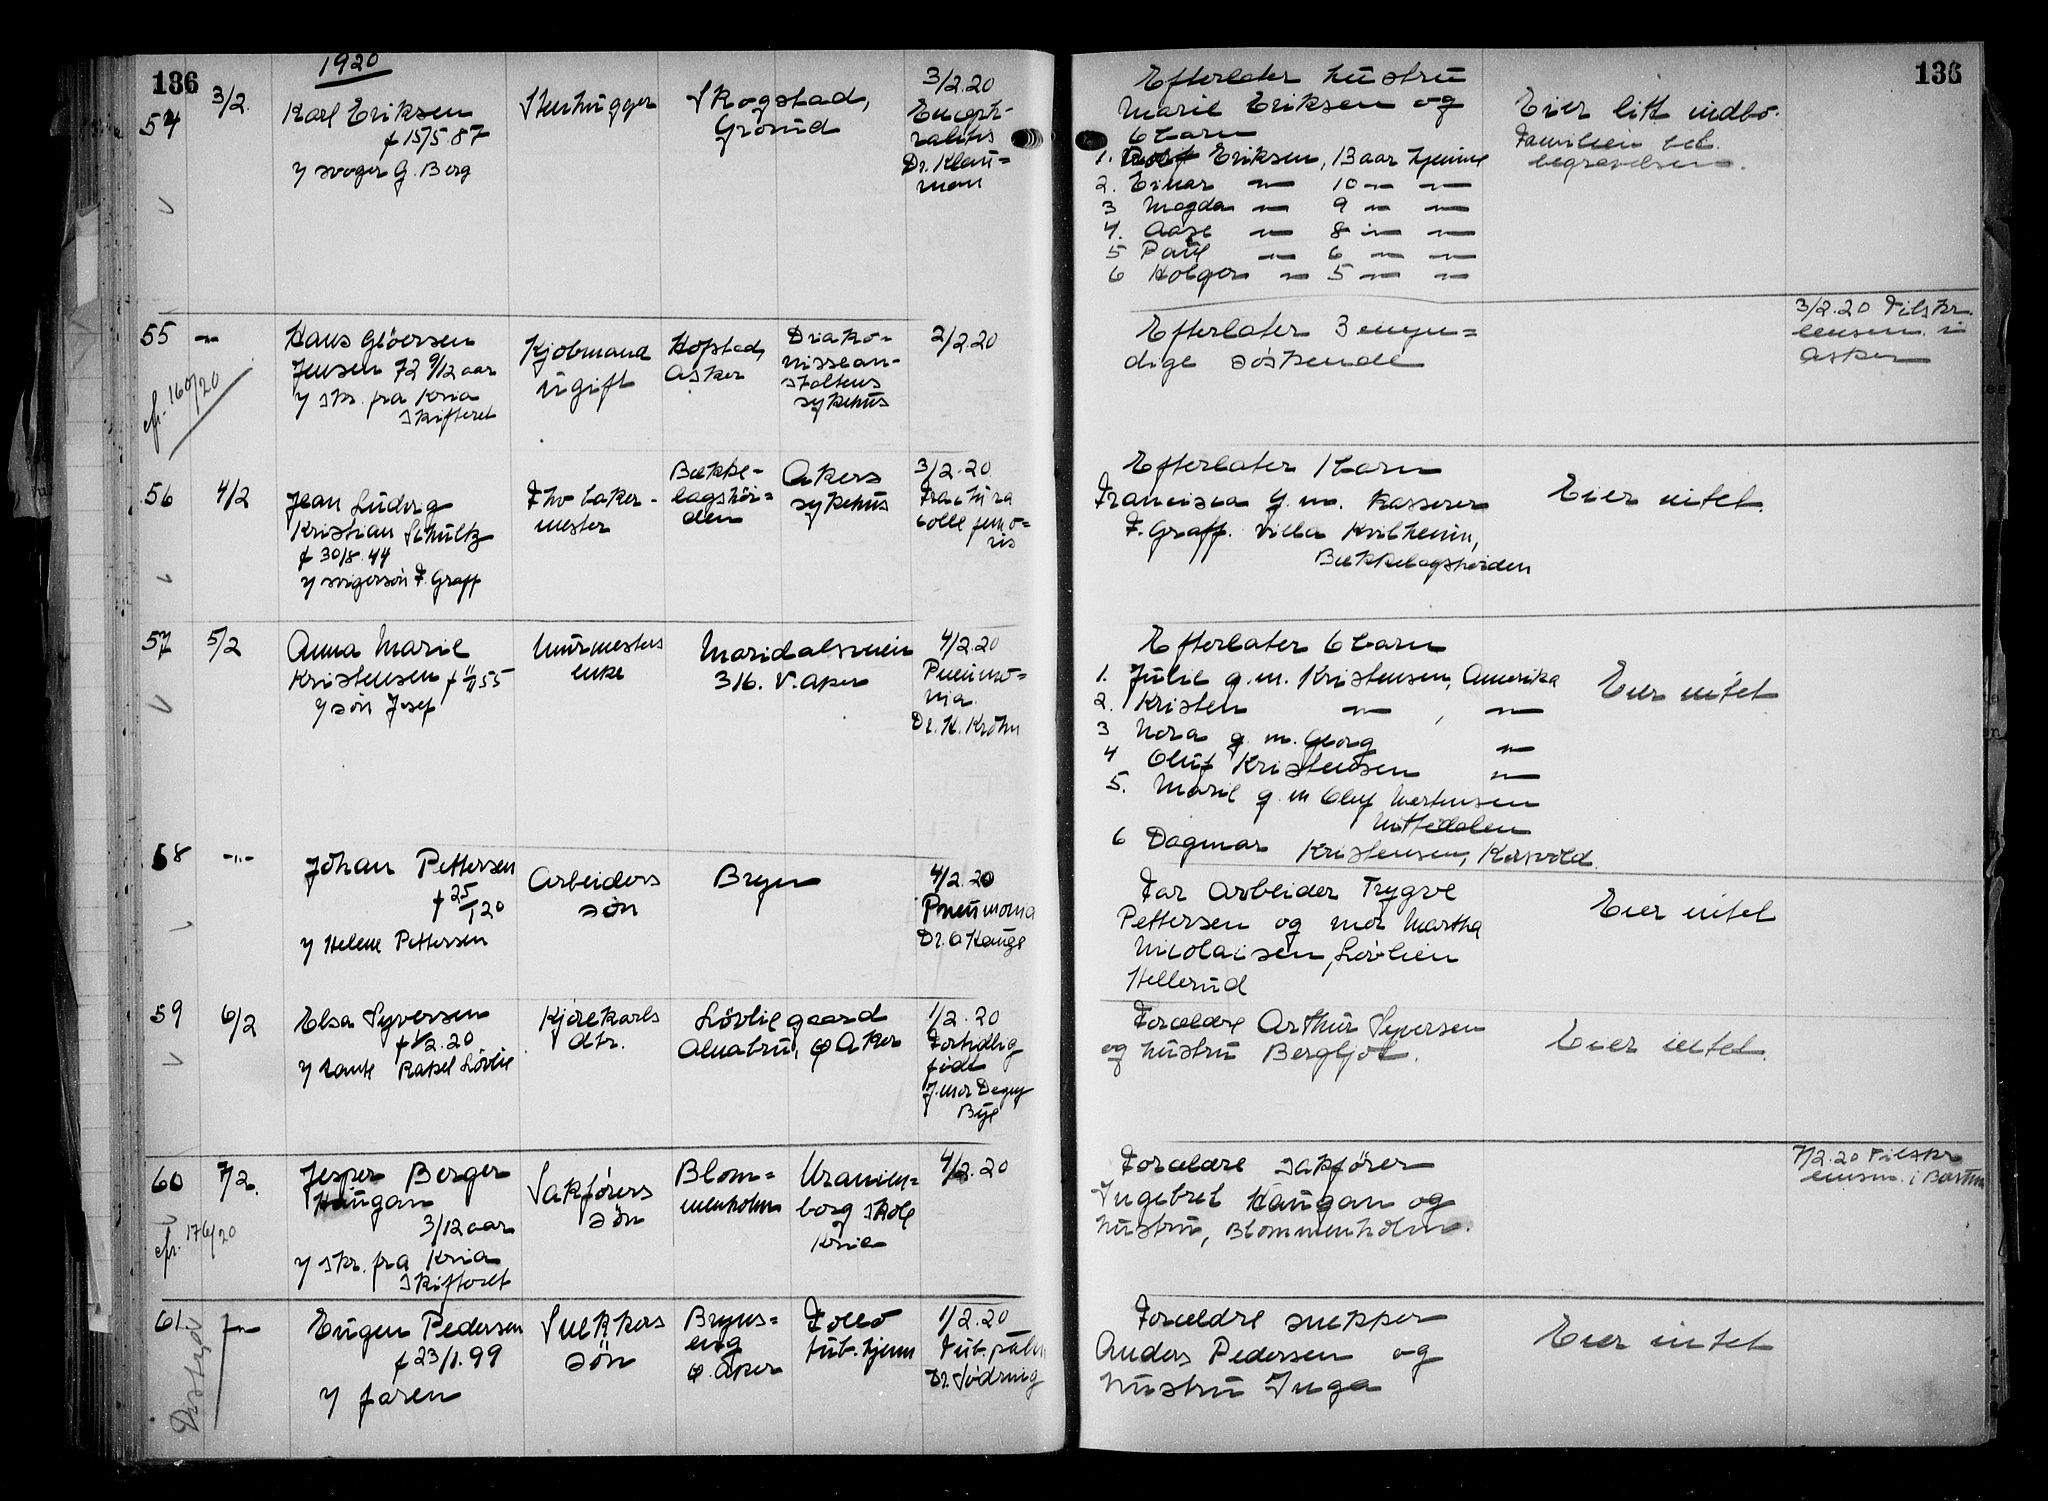 1920
136
54
3/2
Karl Eriksen
f 15/5.87
Stenhugger
Skogstad,
Grorud
3/2.20
Dr. Klau=
man
y svoger G. Berg
Efterlater hustru
Marie Eriksen og
6 barn
1. Eriksen, 13 aar hjemme
2. Einar — 10 — —
3 Magda — 9 — —
4. Aase — 8 — —
5 Paul — 6 — —
6 Holger — 5 — —
Eier litt indbo.
Familien bek.
begravelsen.
136
55
—
Hans Gløersen
Jensen 72 9/12 aar
y skr. fra Kria
skifteret
cfr. 160/20
Kjøbmand
ugift
Hofstad,
Asker
Diako-
nissean-
staltens
sykehus
2/2.20
Efterlater 3 myn=
dige søskende
3/2.20 Tilskr
lensm. i
Asker
56
4/2
Jean Ludvig
Kristian Schultz
f 30/8.44
y svigersøn F. Graff
Fhv baker-
mester
Bække-
lagshøi=
den
Akers
sykehus
3/2.20
Fractura
colle femo=
ris
Efterlater 1 barn
Francisca g.m. Kasserer
F. Graff. Villa Kvilheim,
Bækkelagshøiden
Eier intet.
57
5/2
Anna Marie
Kristensen f 11/11 55
y søn Josef
Murmesters
enke
Maridalsveien
316. V. Aker
4/2.20
Pneumo=
nia.
Dr. K. Krohn
Efterlater 6 barn
1. Julie g.m. Kristensen, Amerika
2. Kristen — , —
3 Nora g.m. Georg —
4 Oluf Kristensen —
5. Marie g.m Oluf Martinsen
Nittedalen
6 Dagmar Kristensen, Korsvold.
Eier intet
58
—"—
Johan Pettersen
f 25/1 20
y Helene Pettersen
Arbeiders
søn
Bryn
4/2.20
Pneumonia
Dr. O Hauge
Far Arbeider Trygve
Pettersen og mor Martha
Nicolaisen, Løvlien
Hellerud
Eier intet
59
6/2
Elsa Syversen
f 1/2.20
y tante Rakel Løvlie
Kjørekarls
dtr.
Løvliegaard
Alnabru, Ø Aker
1/2.20
Fortidlig
født
J.mor Dagny
Bye
Forældre Arthur Syversen
og hustru Bergljot.
Eier intet.
60
7/2.
Jesper Berger
Haugan
3/12 aar
y skr. fra Kria
skifteret
cfr. 176/20
Sakførers
søn
Blom=
menholm
Uranien=
borg skole
Kria
4/2.20
Forældre sakfører
Ingebret Haugan og
hustru, Blommenholm.
7/2.20 Tilskr
lensm. i Bærum
61
—
Eugen Pedersen
f 23/1.99
y faren
Snekkers
søn
Bryns=
eng
Ø. Aker
Follo
tub. hjem
1/2.20
Tub. pulm
Dr. Sødring
Forældre snekker
Anders Pedersen og
hustru Inga
Eier intet